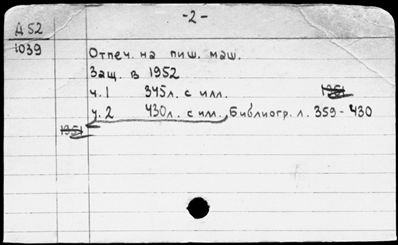 -2-
Д 52
1039
Отпеч. на пиш. маш.
Защ. в 1952
ч.1 345л. с илл.
ч.2 430л. с илл., Библиогр. л. 359-430
1951